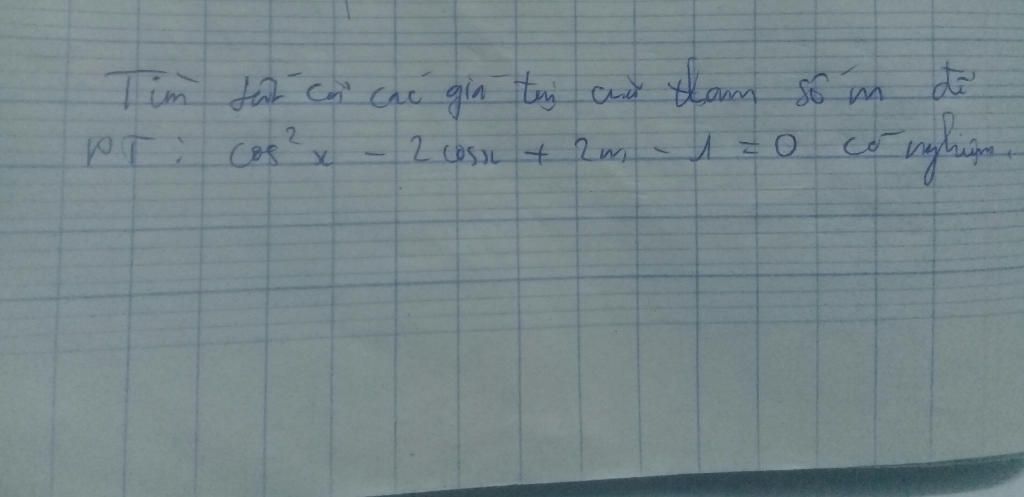 Tìm tất cả các giá trị của tham số m để
PT: cos²x - 2cosx + 2m - 1 = 0 có nghiệm.